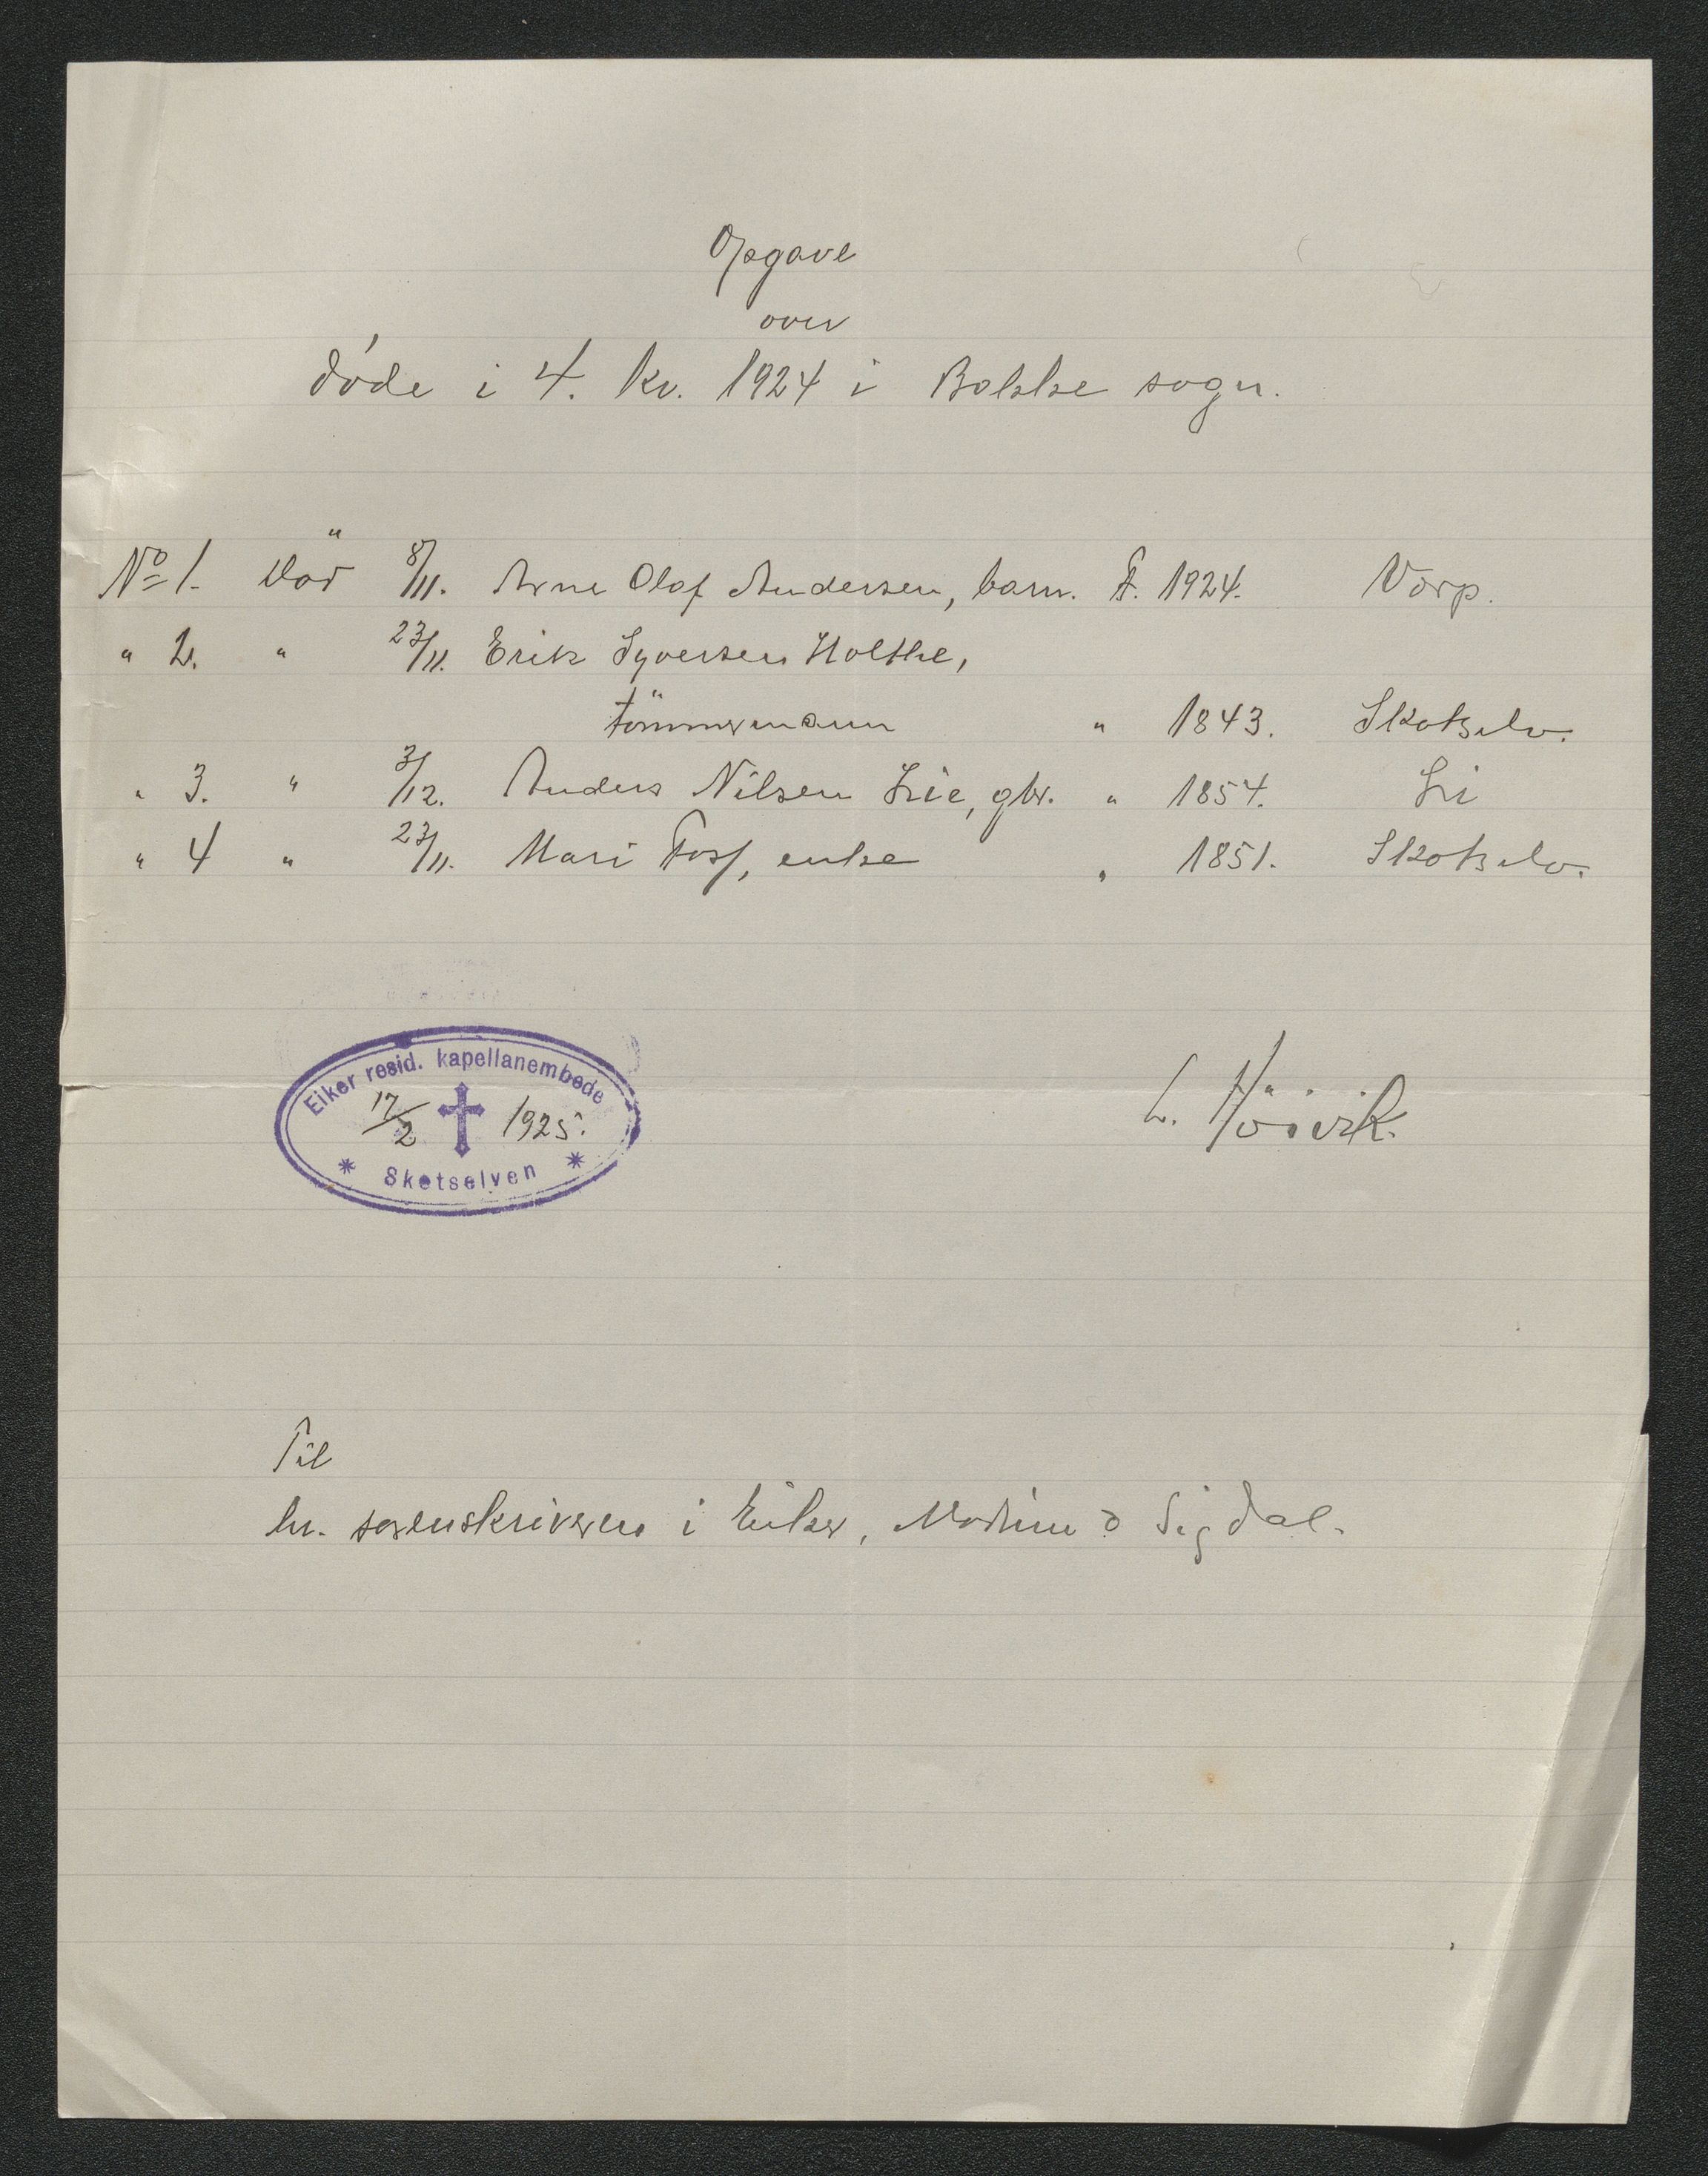 Opgave
over
döde i 4. kv. 1924 i Bakke sogn.
No 1. Död 8/11. Arne Olaf Andersen, barn. F. 1924. Vorp.
" 2. " 23/11. Erik Syversen Holthe,
tömmermann " 1843. Skotselv.
" 3. " 3/12. Anders Nilsen Lie, gbr. " 1854. Li
" 4 " 23/11. Mari Foss, enke " 1851. Skotselv.
Eiker resid. kapellanembede
17/2 1925.
Skotselven
L. Höivik.
Til
hr. sorenskriveren i Eiker, Modum & Sigdal.